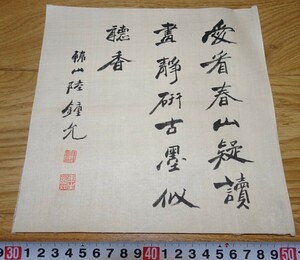 愛看春山疑讀
畫靜研古墨似
聽香
錫山陸鍾允
30 1 2 3 4 5 6 7 8 9 40 1 2 3 4 5 6 7 8 9 50